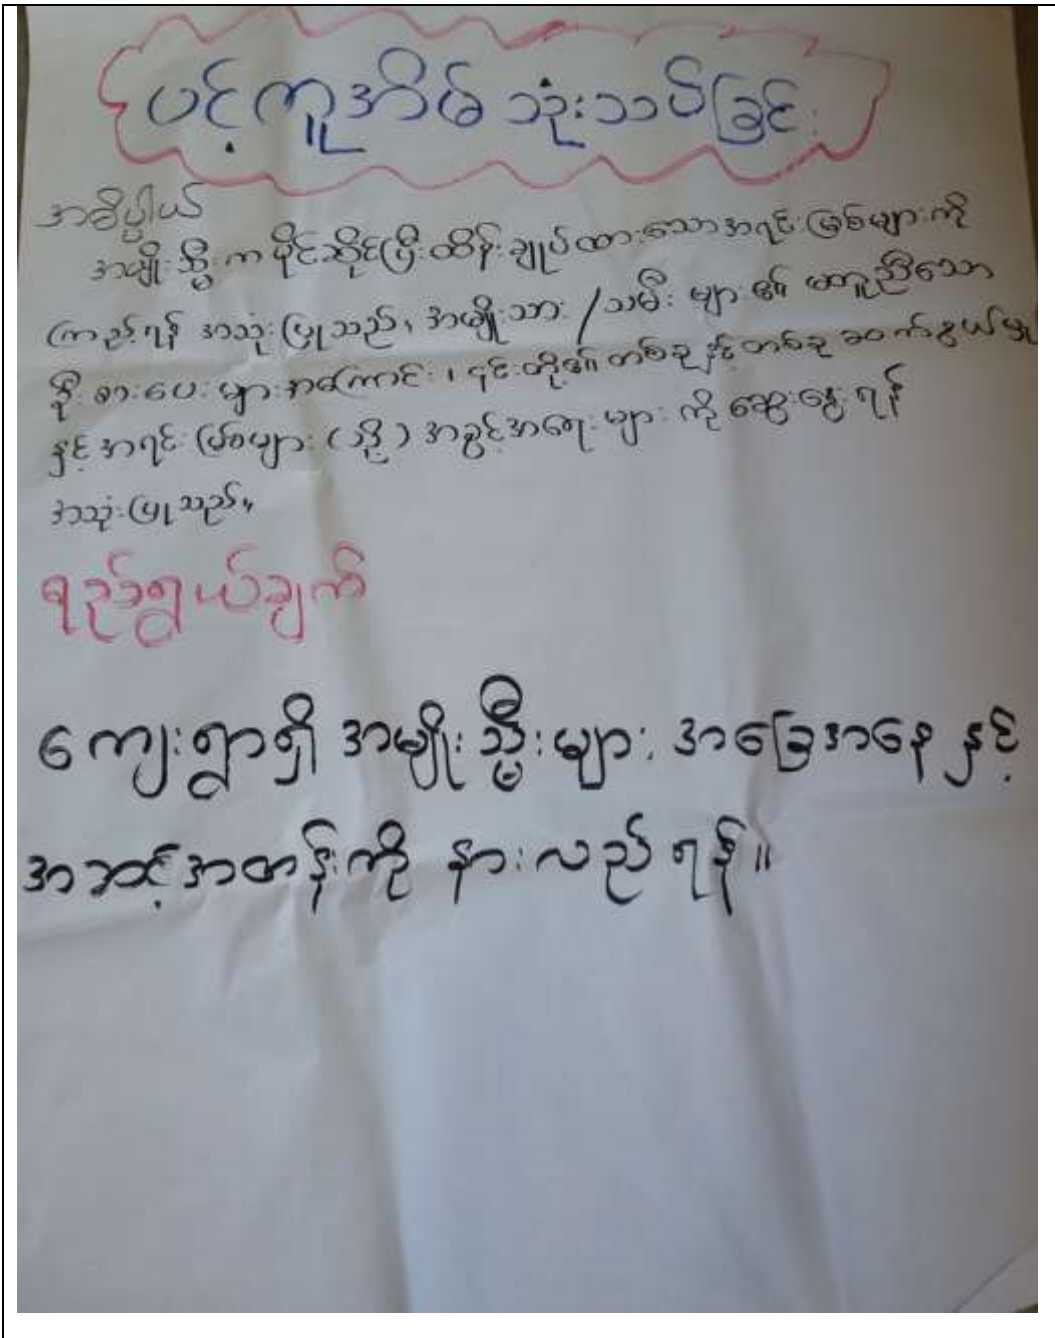 ပင့်ကူအိမ် သုံးသပ်ခြင်း
အဓိပ္ပါယ်
အမျိုးသ္မီးက ပိုင်ဆိုင်ပြီး ထိန်းချုပ်ထားသောအရင်းမြစ်များကို
ကြည့်ရန် အသုံးပြုသည်၊ အမျိုးသား/သမီး များ၏ မတူညီသော
ဦးစားပေးများအကြောင်း၊ ၎င်းတို့၏ တစ်ခုနှင့်တစ်ခု ဆက်နွယ်မှု
နှင့် အရင်းမြစ်များ (သို့) အခွင့်အရေးများ ကို ဆွေးနွေးရန်
အသုံးပြုသည်။
ရည်ရွယ်ချက်
ကျေးရွာရှိ အမျိုးသ္မီးများ အခြေအနေ နှင့်
အဆင့်အတန်းကို နားလည်ရန်။